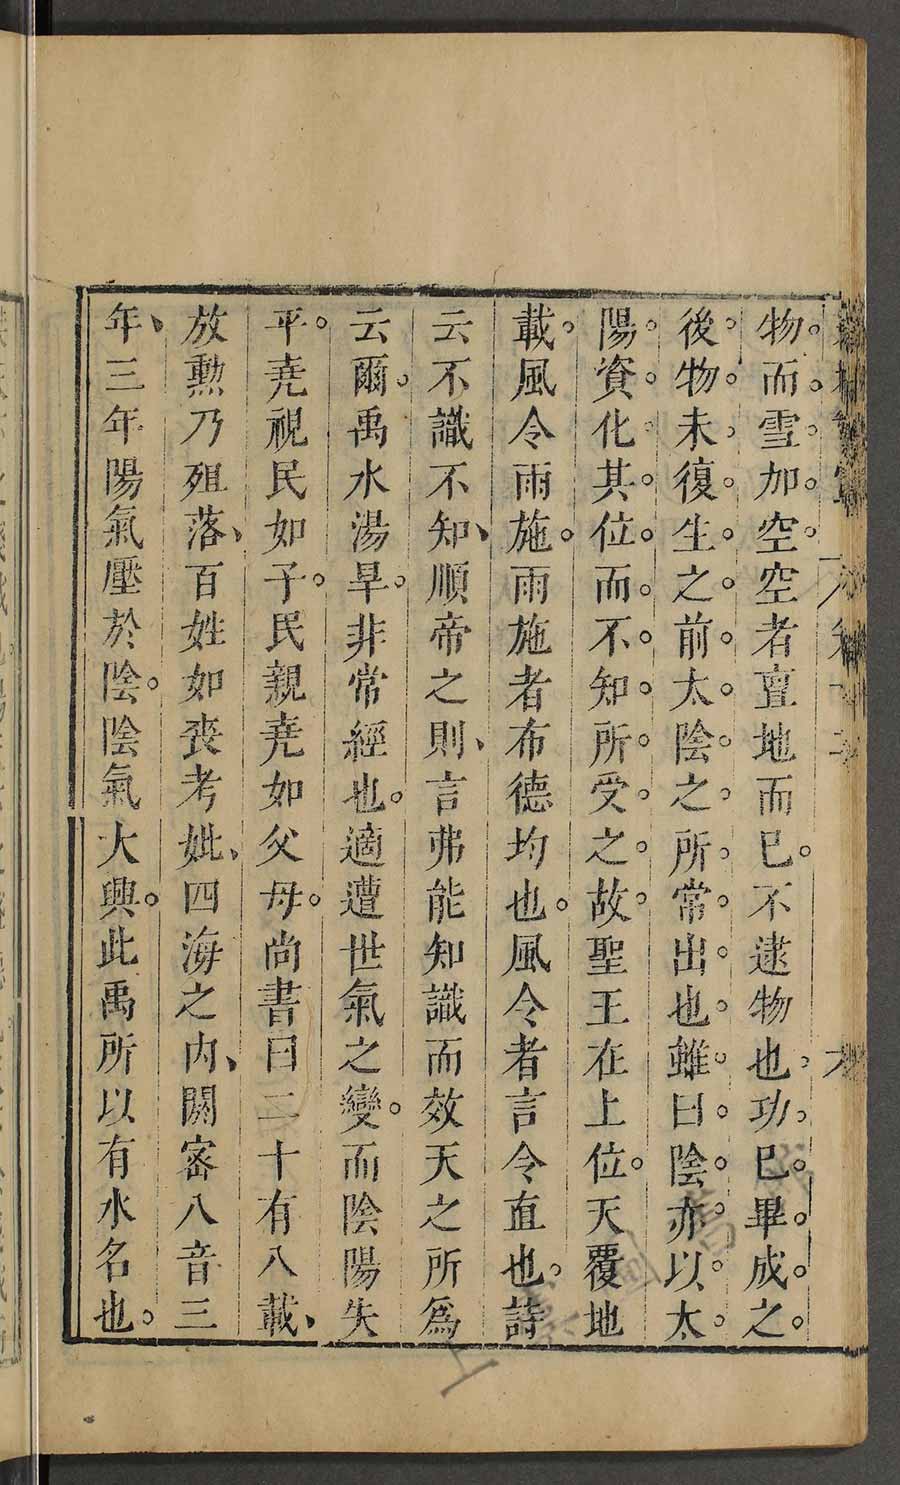 物。而。雪。加。空。空者亶地而已。不逮物也、功、已。畢。成。之。
後。物。未。復。生。之。前。太。陰。之。所。常。出。也。雖。曰。陰。亦。以。太。
陽。資。化。其。位。而。不。知。所。受。之。故。聖王在上位。天覆地
載。風令雨施。雨施者布德均也。風令者言令直也。詩
云不識不知、順帝之則、言弗能知識而效天之所爲
云爾。禹水湯旱。非常經也。適遭世氣之變。而陰陽失
平。堯視民如子。民親堯如父母。尚書曰二十有八載、
放勳乃殂落、百姓如喪考妣、四海之內、閼密八音三
年、三年陽氣壓於陰。陰氣大興。此禹所以有水名也。